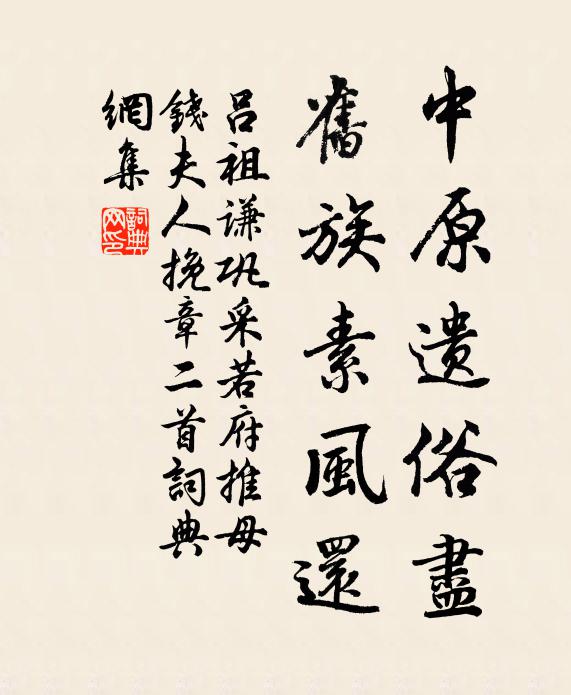 中原遺俗盡
舊族素風還
呂祖謙巩采若府推母
錢夫人挽章二首詞典
網集
詞典网印